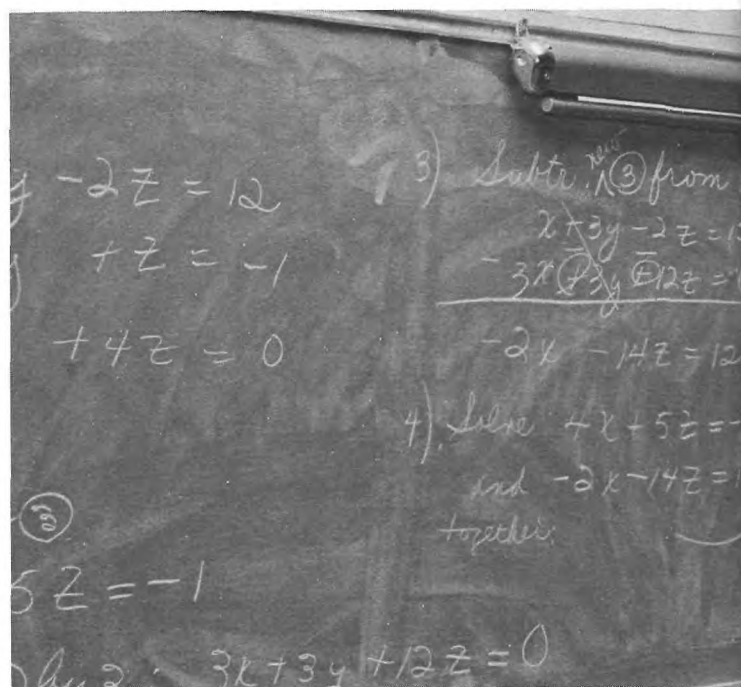 y -2z = 12
y +z = -1
+4z = 0
③
5z = -1
by 3: 3x+3y+12z=0
3) Subtr. new ③ from
x+3y-2z=12
- 3x+3y+12z=0
-2x -14z=12
4). Solve 4x+5z=-
and -2x-14z=1
together.